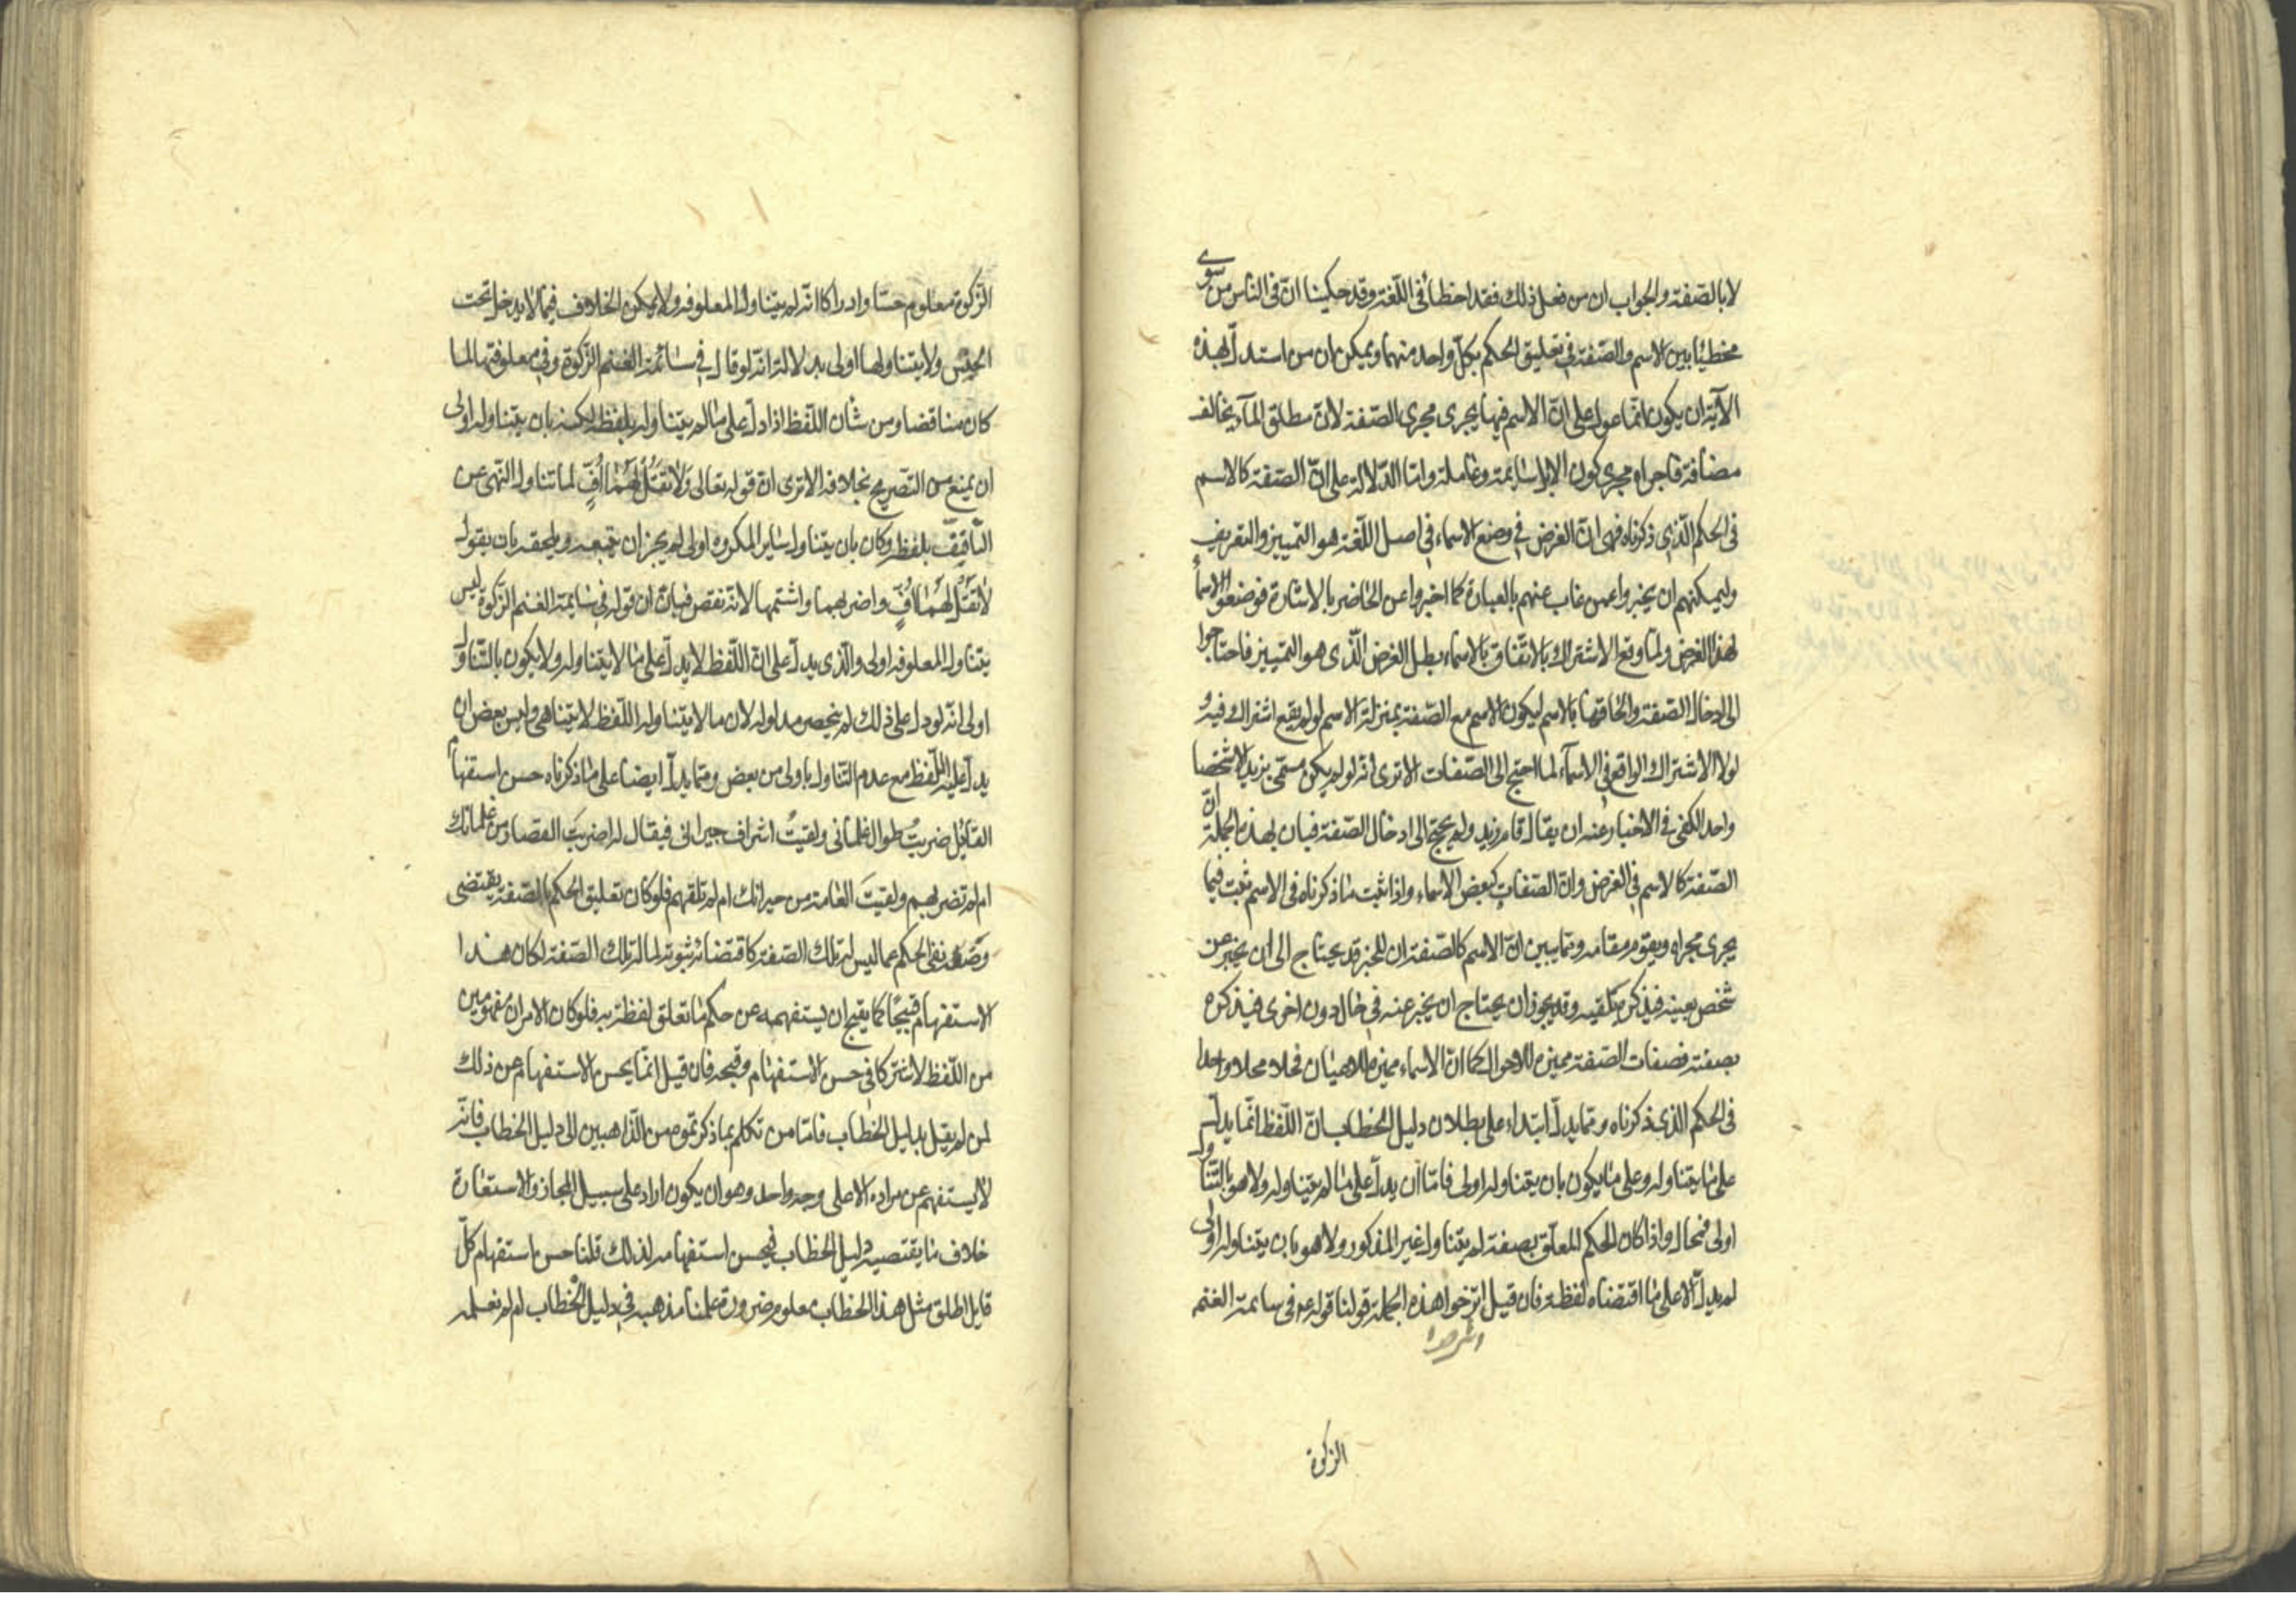 لا بالصّفة والجواب ان من فعل ذلك فقد اخطأ فى اللّغة وقد حكينا انّ فى الناس من سوى
مخطئا بين الاسم والصّفة فى تعليق الحكم بكلّ واحد منهما ويمكن ان من استدلّ بهذه
الآية ان يكون انّما عول على انّ الاسم فيها يجرى مجرى الصّفة لانّ مطلق المآء يخالف
مضافة فاجراه مجرى كون الابل سايمة وعاملة وامّا الدّلالة على انّ الصّفة كالاسم
فى الحكم الّذى ذكرناه فهى انّ الغرض فى وضع الاسماء فى اصل اللّغة هو التّمييز والتعريف
وليمكنهم ان يخبروا عمن غاب عنهم بالعبارة كما اخبروا عن الحاضر بالاشارة فوضعوا الاسمأ
لهذا الغرض ولمّا وقع الاشتراك بالاتّفاق بالاسماء بطل الغرض الّذى هو التمييز فاحتاجوا
الى ادخال الصّفة والحاقها بالاسم ليكون الاسم مع الصّفة بمنزلة الاسم لو لم يقع اشتراك فيه و
لولا الاشتراك الواقع فى الاسمآء لما احتج الى الصّفات الا ترى انّه لو لم يكن مسمّى بزيد الا شخصا
واحدا لكفى فى الاخبار عنه ان يقال قام زيد ولم يحتج الى ادخال الصّفة فبان بهذه الجملة انّ
الصّفة كالاسم فى الغرض وانّ الصّفات كبعض الاسماء واذا ثبت ما ذكرناه فى الاسم ثبت فيما
يجرى مجراه ويقوم مقامه وممّا يبين انّ الاسم كالصّفة ان المخبر قد يحتاج الى ان يخبر عن
شخص بعينه فيذكر بلقبه وقد يجوز ان يحتاج ان يخبر عنه فى حال دون اخرى فيذكره
بصفته فصفات الصّفة مميزة للاحوال كما انّ الاسماء مميزة للاعيان فحلا محلا واحدا
فى الحكم الذى ذكرناه وممّا يدلّ ابتداء على بطلان دليل الخطاب انّ اللّفظ انّما يدلّ
على ما يتناوله وعلى ما يكون بان يتناوله اولى فامّا ان يدلّ على ما لم يتناوله ولا هو بالتّناول
اولى فمحال واذا كان الحكم المعلّق بصفة لم يتناول غير المذكور ولا هو بان يتناوله اولى
لم يدلّ الا على ما اقتضاه لفظه فان قيل اشرحوا هذه الجملة قولنا قوله ع فى سائمة الغنم
اشرحوا
الزكوة
الزّكوة معلوم حسّا وادراكا انّه لم يتناول المعلوفه ولا يمكن الخلاف فيما لا يدخل تحت
الحِسّ ولا يتناولها اولى بدلالة انّه لو قال فى سائمة الغنم الزّكوة وفى معلوفتها لما
كان مناقضا ومن شأن اللّفظ اذا دلّ على ما لم يتناوله بلفظه لكنه بان يتناوله اولى
ان يمنع من التّصريح بخلافه الا ترى انّ قوله تعالى وَلاٰ تَقُلْ لَهُمٰا اُفٍّ لما تناول النّهى عن
التّافيف بلفظه وكان بان يتناول ساير المكروه اولى لم يجز ان يتبعه ويلحقه بان يقول
لاٰ تَقُلْ لَهُمٰا اُفٍّ واضربهما واشتمهما لانّه نقض فبان ان قوله فى سايمة الغنم الزّكوة ليس
يتناول المعلوفه اولى والّذى يدلّ على انّ اللّفظ لا يدلّ على ما لا يتناوله ولا يكون بالتّناول
اولى انّه لو دلّ على ذلك لم ينحصر مدلوله لان ما لا يتناوله اللّفظ لا يتناهى وليس بعض ان
يدلّ عليه اللّفظ مع عدم التّناول باولى من بعض وممّا يدلّ ايضا على ما ذكرناه حسن استفهام
القائل ضربتُ طوال غلمانى ولقيتُ اشراف جيرانى فيقال له اضربتَ القصار من غلمانك
ام لم تضربهم ولقيتَ العامة من جيرانك ام لم تلقهم فلو كان تعليق الحكم بالصّفة يقتضى
وضعه نفى الحكم عما ليس له تلك الصّفة كاقتضائه ثبوته لما له تلك الصّفة لكان هذا
الاستفهام قبيحًا كما يقبح ان يستفهمه عن حكم ما تعلق لفظه به فلو كان الامران مفهومين
من اللّفظ لاشتركا فى حسن الاستفهام وقبحه فان قيل انّما يحسن الاستفهام عن ذلك
لمن لم يقل بدليل الخطاب فامّا من تكلم بما ذكرتموه من الذّاهبين الى دليل الخطاب فانّه
لا يستفهم عن مراده الا على وجه واحد وهو ان يكون اراد على سبيل المجاز والاستعارة
خلاف ما يقتضيه دليل الخطاب فيحسن استفهامه لذلك قلنا حسن استفهام كلّ
قايل اطلق مثل هذا الخطاب معلوم ضرورة علمنا مذهبه فى دليل الخطاب ام لم نعلمه